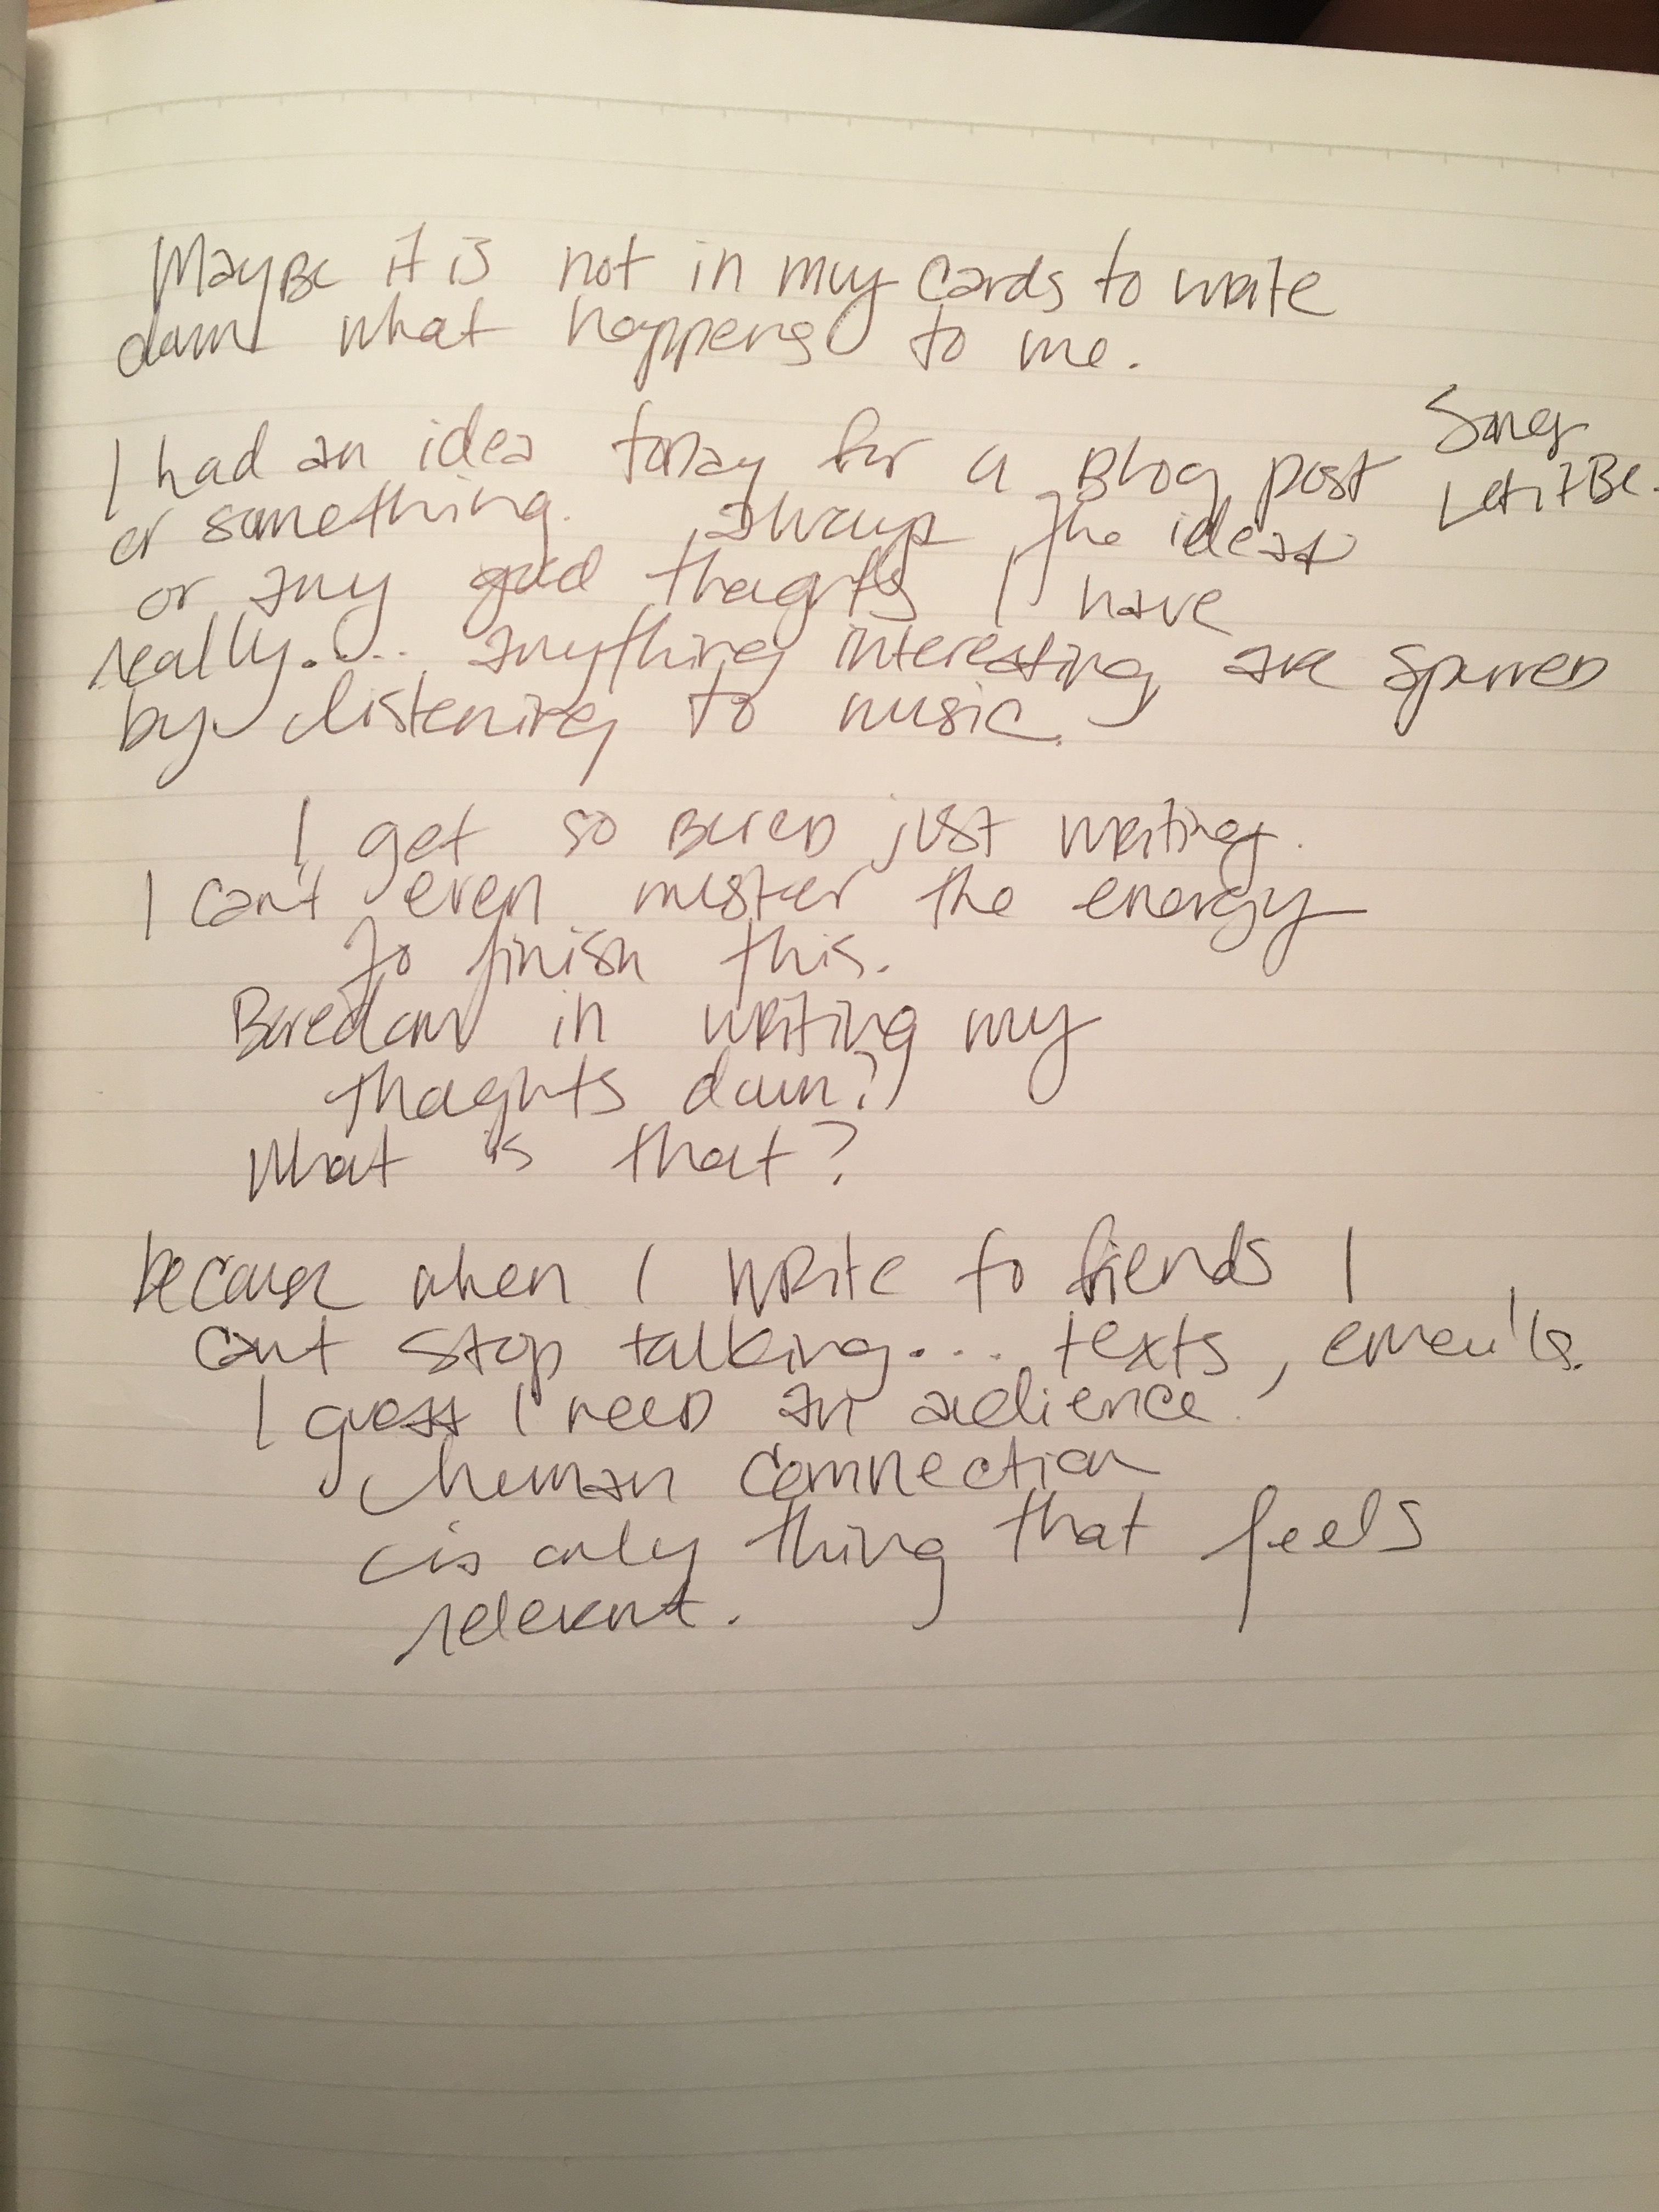 Maybe it is not in my cards to write
down what happens to me.
I had an idea today for a Blog post
Song
Let it Be.
or something. always the ideas
or any good thoughts I have
really.... anything interesting are spurred
by listening to music.
I get so Bored just writing.
I can't even muster the energy
to finish this.
Boredom in writing my
thoughts down?
What is that?
because when I write to friends I
cant stop talking.... texts, email's.
I guess I need an audience.
human connection
is only thing that feels
relevant.